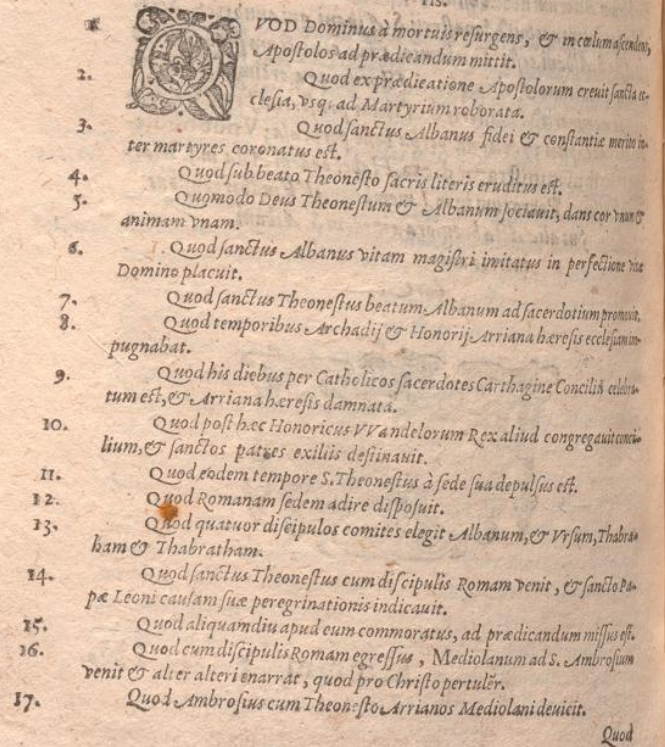 TIS.
1 QVOD Dominus à mortuis resurgens, & in cœlum ascendens,
Apostolos ad prædicandum mittit.
2. Quod ex prædicatione Apostolorum crevit sancta ec-
clesia, vsq; ad Martyrium roborata.
3. Quod sanctus Albanus fidei & constantiæ merito in-
ter martyres coronatus est.
4. Quod sub beato Theonesto sacris literis eruditus est.
5. Quomodo Deus Theonestum & Albanum sociauit, dans cor vnum &
animam vnam.
6. Quod sanctus Albanus vitam magistri imitatus in perfectione vitæ
Domino placuit.
7. Quod sanctus Theonestus beatum Albanum ad sacerdotium promouit.
8. Quod temporibus Archadij & Honorij Arriana hæresis ecclesiam im-
pugnabat.
9. Quod his diebus per Catholicos sacerdotes Carthagine Conciliū celebra-
tum est, & Arriana hæresis damnata.
10. Quod post hæc Honoricus VVandelorum Rex aliud congregauit conci-
lium, & sanctos patres exiliis destinauit.
11. Quod eodem tempore S. Theonestus à sede sua depulsus est.
12. Quod Romanam sedem adire disposuit.
13. Quod quatuor discipulos comites elegit Albanum, & Vrsum, Thabra-
ham & Thabratham.
14. Quod sanctus Theonestus cum discipulis Romam venit, & sancto Pa-
pæ Leoni causam suæ peregrinationis indicauit.
15. Quod aliquamdiu apud eum commoratus, ad prædicandum missus est.
16. Quod cum discipulis Romam egressus, Mediolanum ad S. Ambrosium
venit & alter alteri enarrat, quod pro Christo pertulēr.
17. Quod Ambrosius cum Theonesto Arrianos Mediolani deuicit.
Quod